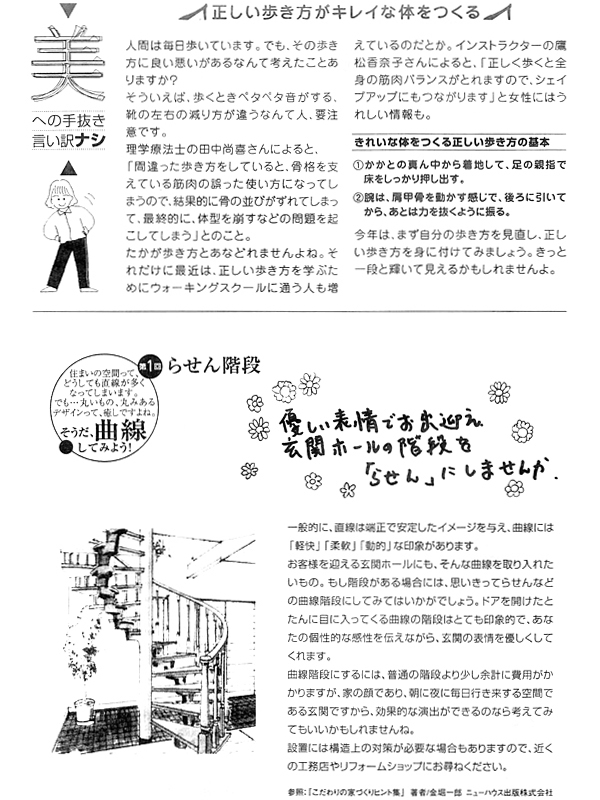 正しい歩き方がキレイな体をつくる
美
への手抜き
言い訳ナシ
人間は毎日歩いています。でも、その歩き
方に良い悪いがあるなんて考えたことあ
りますか?
そういえば、歩くときペタペタ音がする、
靴の左右の減り方が違うなんて人、要注
意です。
理学療法士の田中尚喜さんによると、
「間違った歩き方をしていると、骨格を支
えている筋肉の誤った使い方になってし
まうので、結果的に骨の並びがずれてしまっ
て、最終的に、体型を崩すなどの問題を起
こしてしまう」とのこと。
たかが歩き方とあなどれませんよね。そ
れだけに最近は、正しい歩き方を学ぶた
めにウォーキングスクールに通う人も増
えているのだとか。インストラクターの鷹
松香奈子さんによると、「正しく歩くと全
身の筋肉バランスがとれますので、シェイ
プアップにもつながります」と女性にはう
れしい情報も。
きれいな体をつくる正しい歩き方の基本
①かかとの真ん中から着地して、足の親指で
床をしっかり押し出す。
②腕は、肩甲骨を動かす感じで、後ろに引いて
から、あとは力を抜くように振る。
今年は、まず自分の歩き方を見直し、正し
い歩き方を身に付けてみましょう。きっと
一段と輝いて見えるかもしれませんよ。
住まいの空間って、
どうしても直線が多く
なってしまいます。
でも…丸いもの、丸みある
デザインって、癒しですよね。
そうだ、曲線
してみよう!
第1回 らせん階段
優しい表情でお出迎え
玄関ホールの階段を
「らせん」にしませんか.
一般的に、直線は端正で安定したイメージを与え、曲線には
「軽快」「柔軟」「動的」な印象があります。
お客様を迎える玄関ホールにも、そんな曲線を取り入れた
いもの。もし階段がある場合には、思いきってらせんなど
の曲線階段にしてみてはいかがでしょう。ドアを開けたと
たんに目に入ってくる曲線の階段はとても印象的で、あな
たの個性的な感性を伝えながら、玄関の表情を優しくして
くれます。
曲線階段にするには、普通の階段より少し余計に費用がか
かりますが、家の顔であり、朝に夜に毎日行き来する空間で
ある玄関ですから、効果的な演出ができるのなら考えてみ
てもいいかもしれませんね。
設置には構造上の対策が必要な場合もありますので、近く
の工務店やリフォームショップにお尋ねください。
参照:「こだわりの家づくりヒント集」 著者/金堀一郎 ニューハウス出版株式会社